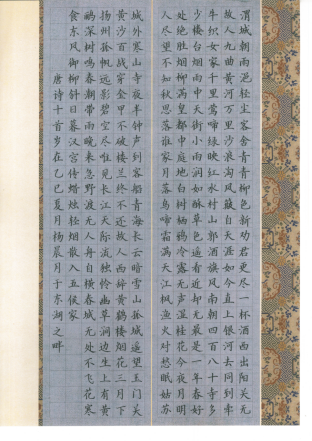 渭城朝雨浥轻尘客舍青青柳色新劝君更尽一杯酒西出阳关无
故人九曲黄河万里沙浪淘风簸自天涯如今直上银河去同到牵
牛织女家千里莺啼绿映红水村山郭酒旗风南朝四百八十寺多
少楼台烟雨中天街小雨润如酥草色遥看近却无最是一年春好
处绝胜烟柳满皇都中庭地白树栖鸦冷露无声湿桂花今夜月明
人尽望不知秋思落谁家月落乌啼霜满天江枫渔火对愁眠姑苏
城外寒山寺夜半钟声到客船青海长云暗雪山孤城遥望玉门关
黄沙百战穿金甲不破楼兰终不还故人西辞黄鹤楼烟花三月下
扬州孤帆远影碧空尽唯见长江天际流独怜幽草涧边生上有黄
鹂深树鸣春潮带雨晚来急野渡无人舟自横春城无处不飞花寒
食东风御柳斜日暮汉宫传蜡烛轻烟散入五侯家
唐诗十首岁在乙巳夏月杨晨月于东湖之畔